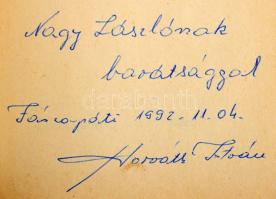 Nagy Lászlónak
barátsággal
1992. 11. 04.
Horváth István